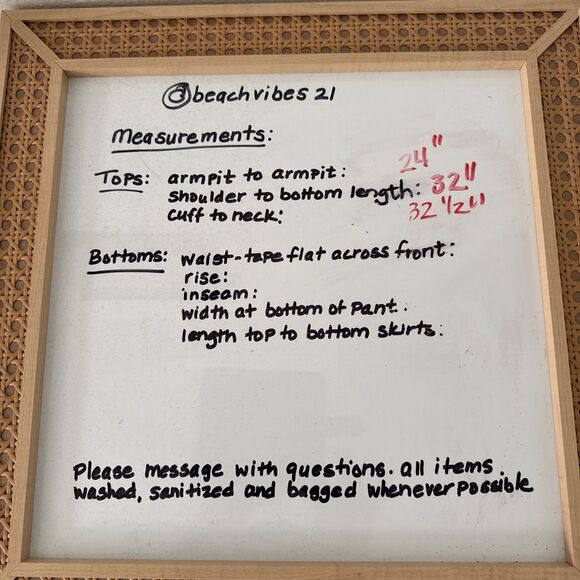 @beachvibes 21
Measurements:
Tops: armpit to armpit: 24"
shoulder to bottom length: 32"
cuff to neck: 32 1/2"
Bottoms: waist-tape flat across front:
rise:
inseam:
width at bottom of pant.
length top to bottom skirts:
Please message with questions. all items
washed, sanitized and bagged whenever possible